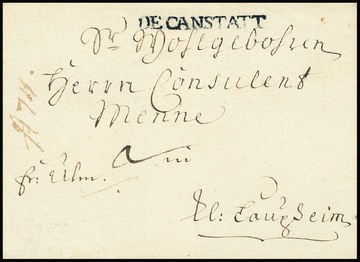 DE CANSTATT
Sr Wohlgebohren
Herrn Consulent
Menne
fr: Ulm.
Kl: Laupheim